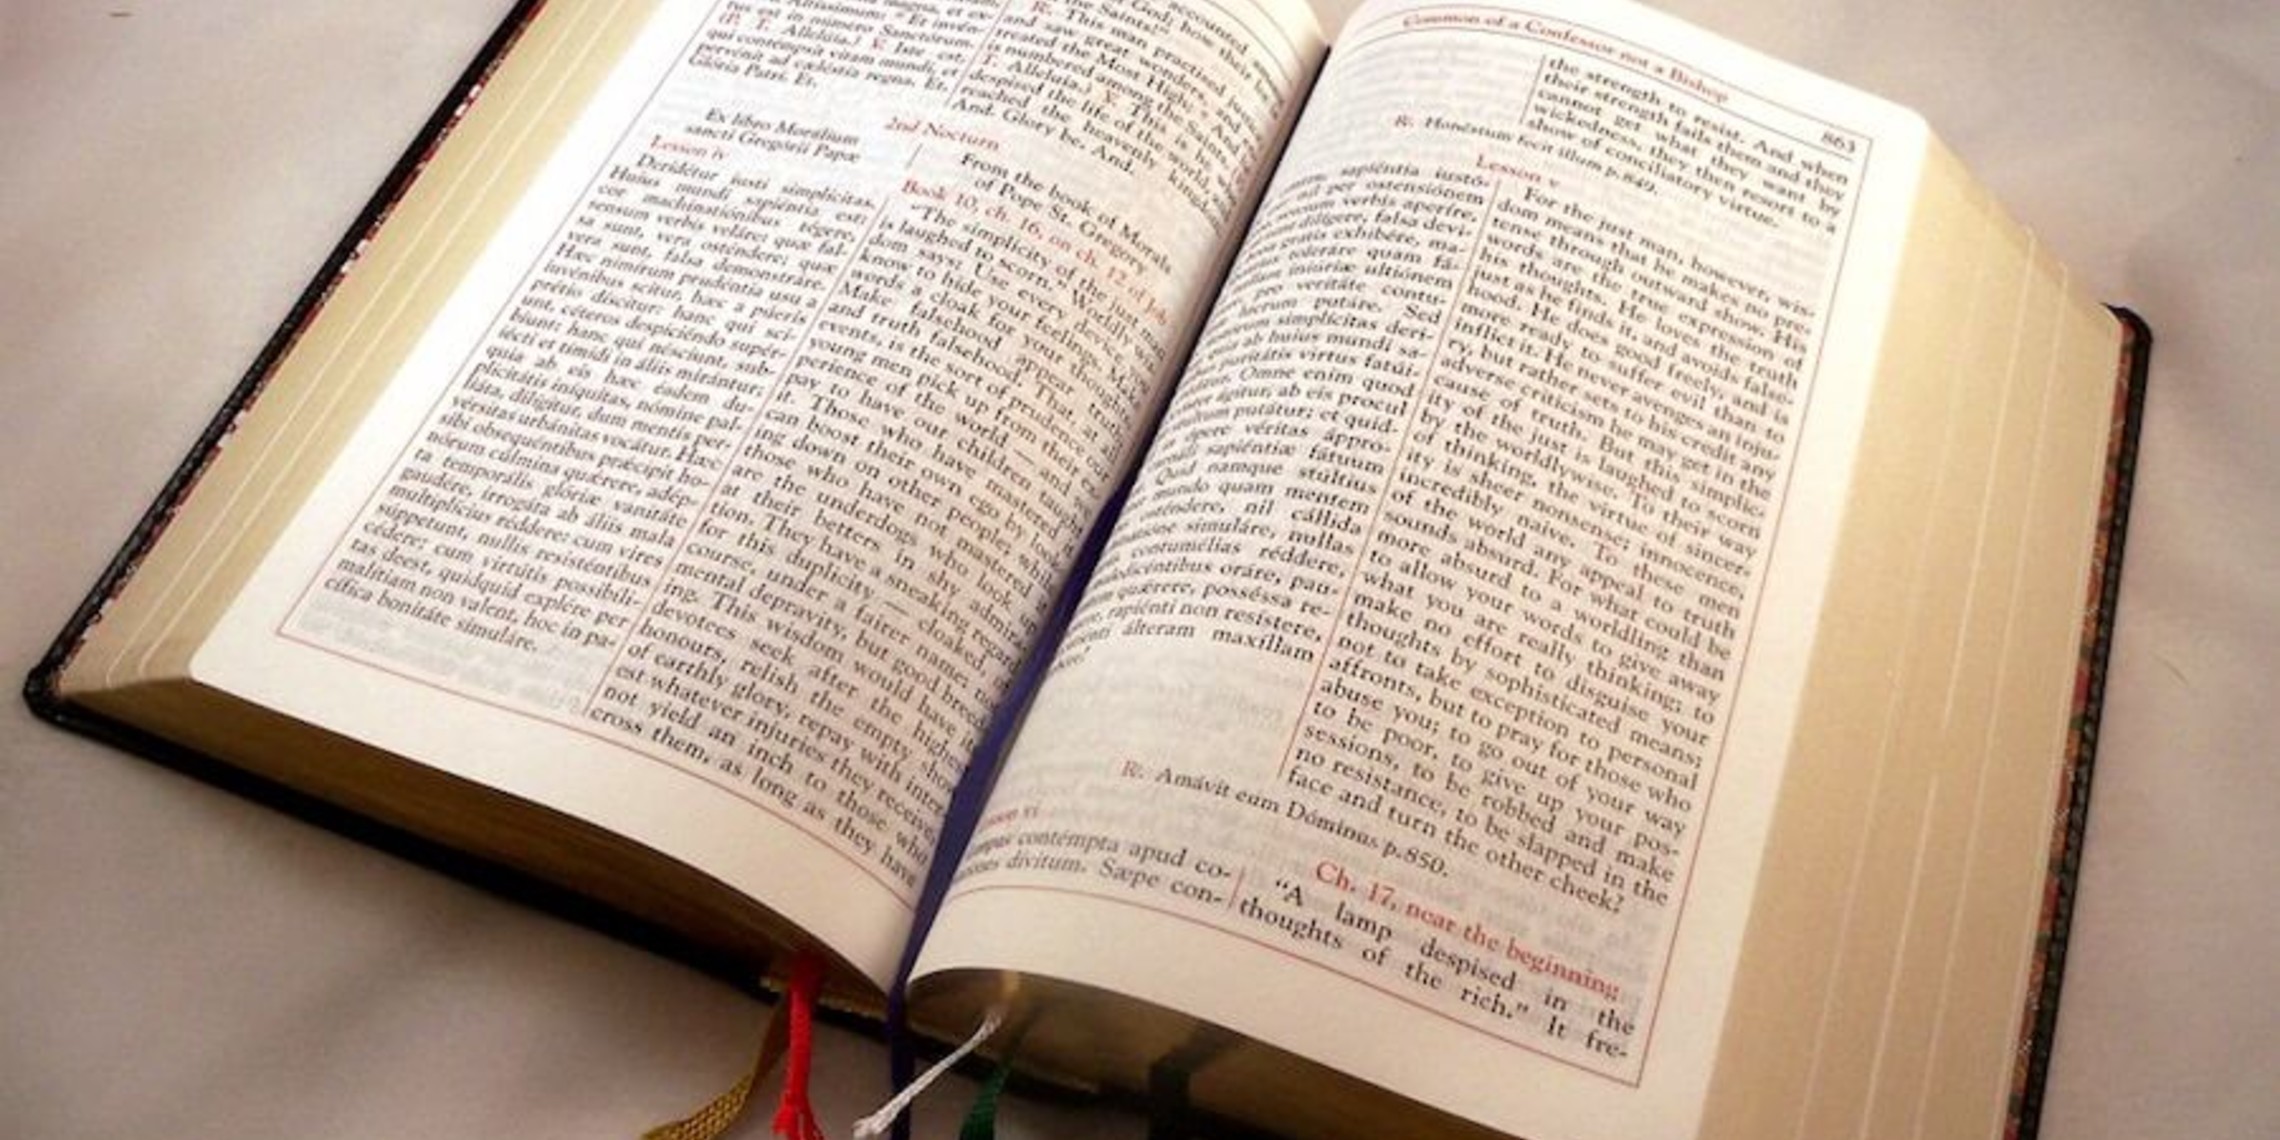 magna, et ex-
Altíssimum: * Et invén-
tus est in número Sanctórum.
(P. T. Allelúia.) ℣. Iste est,
qui contémpsit vitam mundi, et
pervénit ad cæléstia regna. Et.
Glória Patri. Et.
accounted
of God; how their
the Saints!"
℟. This man practised
and saw great wonders,
treated the Most High: * And
is numbered among the Saints.
T. Alleluia.) ℣. This is he who
despised the life of the world,
reached the heavenly kingdom.
And. Glory be. And.
2nd Nocturn
Ex libro Morálium
sancti Gregórii Papæ
Lesson iv
Deridétur iusti simplícitas.
Huius mundi sapiéntia est:
cor machinatiónibus tégere,
sensum verbis veláre: quæ fal-
sa sunt, vera osténdere; quæ
vera sunt, falsa demonstráre.
Hæc nimírum prudéntia usu a
iuvénibus scitur, hæc a púeris
prétio díscitur: hanc, qui sci-
unt, céteros despiciéndo supér-
biunt: hanc, qui nésciunt, sub-
iécti et tímidi in áliis mirántur:
quia ab eis hæc éadem du-
plicitátis iníquitas, nómine pal-
liáta, dilígitur, dum mentis per-
vérsitas urbánitas vocátur. Hæc
sibi obsequéntibus præcipit ho-
nórum cúlmina quærere, adép-
ta temporális glóriæ vanitáte
gaudére, irrogáta ab áliis mala
multiplícius réddere: cum vires
súppetunt, nullis resisténtibus
cédere: cum virtútis possibíli-
tas deest, quidquid explére per
malítiam non valent, hoc in pa-
cífica bonitáte simuláre.
From the book of Morals
of Pope St. Gregory
Book 10, ch. 16, on ch. 12 of Job
"The simplicity of the just man
is laughed to scorn." Worldly wis-
dom says: Use every device you
know to hide your feelings. Make
words a cloak for your thoughts.
Make falsehood appear truth,
and truth falsehood. That, at all
events, is the sort of prudence our
young men pick up from their ex-
perience of the world — and we
pay to have our children taught
it. Those who have mastered it
can boost their own ego by look-
ing down on other people; whilst
those who have not mastered it
are the underdogs who look up
at their betters in shy admira-
tion. They have a sneaking regard
for this duplicity — cloaked, of
course, under a fairer name; not
mental depravity, but good breed-
ing. This wisdom would have its
devotees seek after the highest
honours, relish the empty show
of earthly glory, repay with inter-
est whatever injuries they receive,
not yield an inch to those who
cross them, as long as they have
Common of a Confessor not a Bishop
863
the strength to resist. And when
their strength fails them and they
cannot get what they want by
wickedness, they then resort to a
show of conciliatory virtue.
℟. Honéstum fecit illum p.849.
Lesson v
sapiéntia iustó-
nil per ostensiónem
verbis aperíre,
dilígere, falsa devi-
gratis exhibére, ma-
toleráre quam fá-
iniúriæ ultiónem
pro veritáte contu-
lucrum putáre. Sed
simplícitas deri-
ab huius mundi sa-
puritátis virtus fatúi-
Omne enim quod
ágitur, ab eis procul
putátur: et quid-
ópere véritas appro-
sapiéntiæ fátuum
Quid namque stúltius
mundo quam mentem
osténdere, nil cállida
simuláre, nullas
contumélias réddere,
maledicéntibus oráre, pau-
quærere, posséssa re-
rapiénti non resístere,
álteram maxíllam
For the just man, however, wis-
dom means that he makes no pre-
tense through outward show. His
words are the true expression of
his thoughts. He loves the truth
just as he finds it, and avoids false-
hood. He does good freely, and is
more ready to suffer evil than to
inflict it. He never avenges an inju-
ry, but rather sets to his credit any
adverse criticism he may get in the
cause of truth. But this simplic-
ity of the just is laughed to scorn
by the worldlywise. To their way
of thinking, the virtue of sincer-
ity is sheer nonsense; innocence,
incredibly naive. To these men
of the world any appeal to truth
sounds absurd. For what could be
more absurd to a worldling than
to allow your words to give away
what you are really thinking; to
make no effort to disguise your
thoughts by sophisticated means;
not to take exception to personal
affronts, but to pray for those who
abuse you; to go out of your way
to be poor, to give up your pos-
sessions, to be robbed and make
no resistance, to be slapped in the
face and turn the other cheek?
℟. Amávit eum Dóminus p.850.
vi
contémpta apud co-
divítum. Sæpe con-
Ch. 17, near the beginning
"A lamp despised in the
thoughts of the rich." It fre-